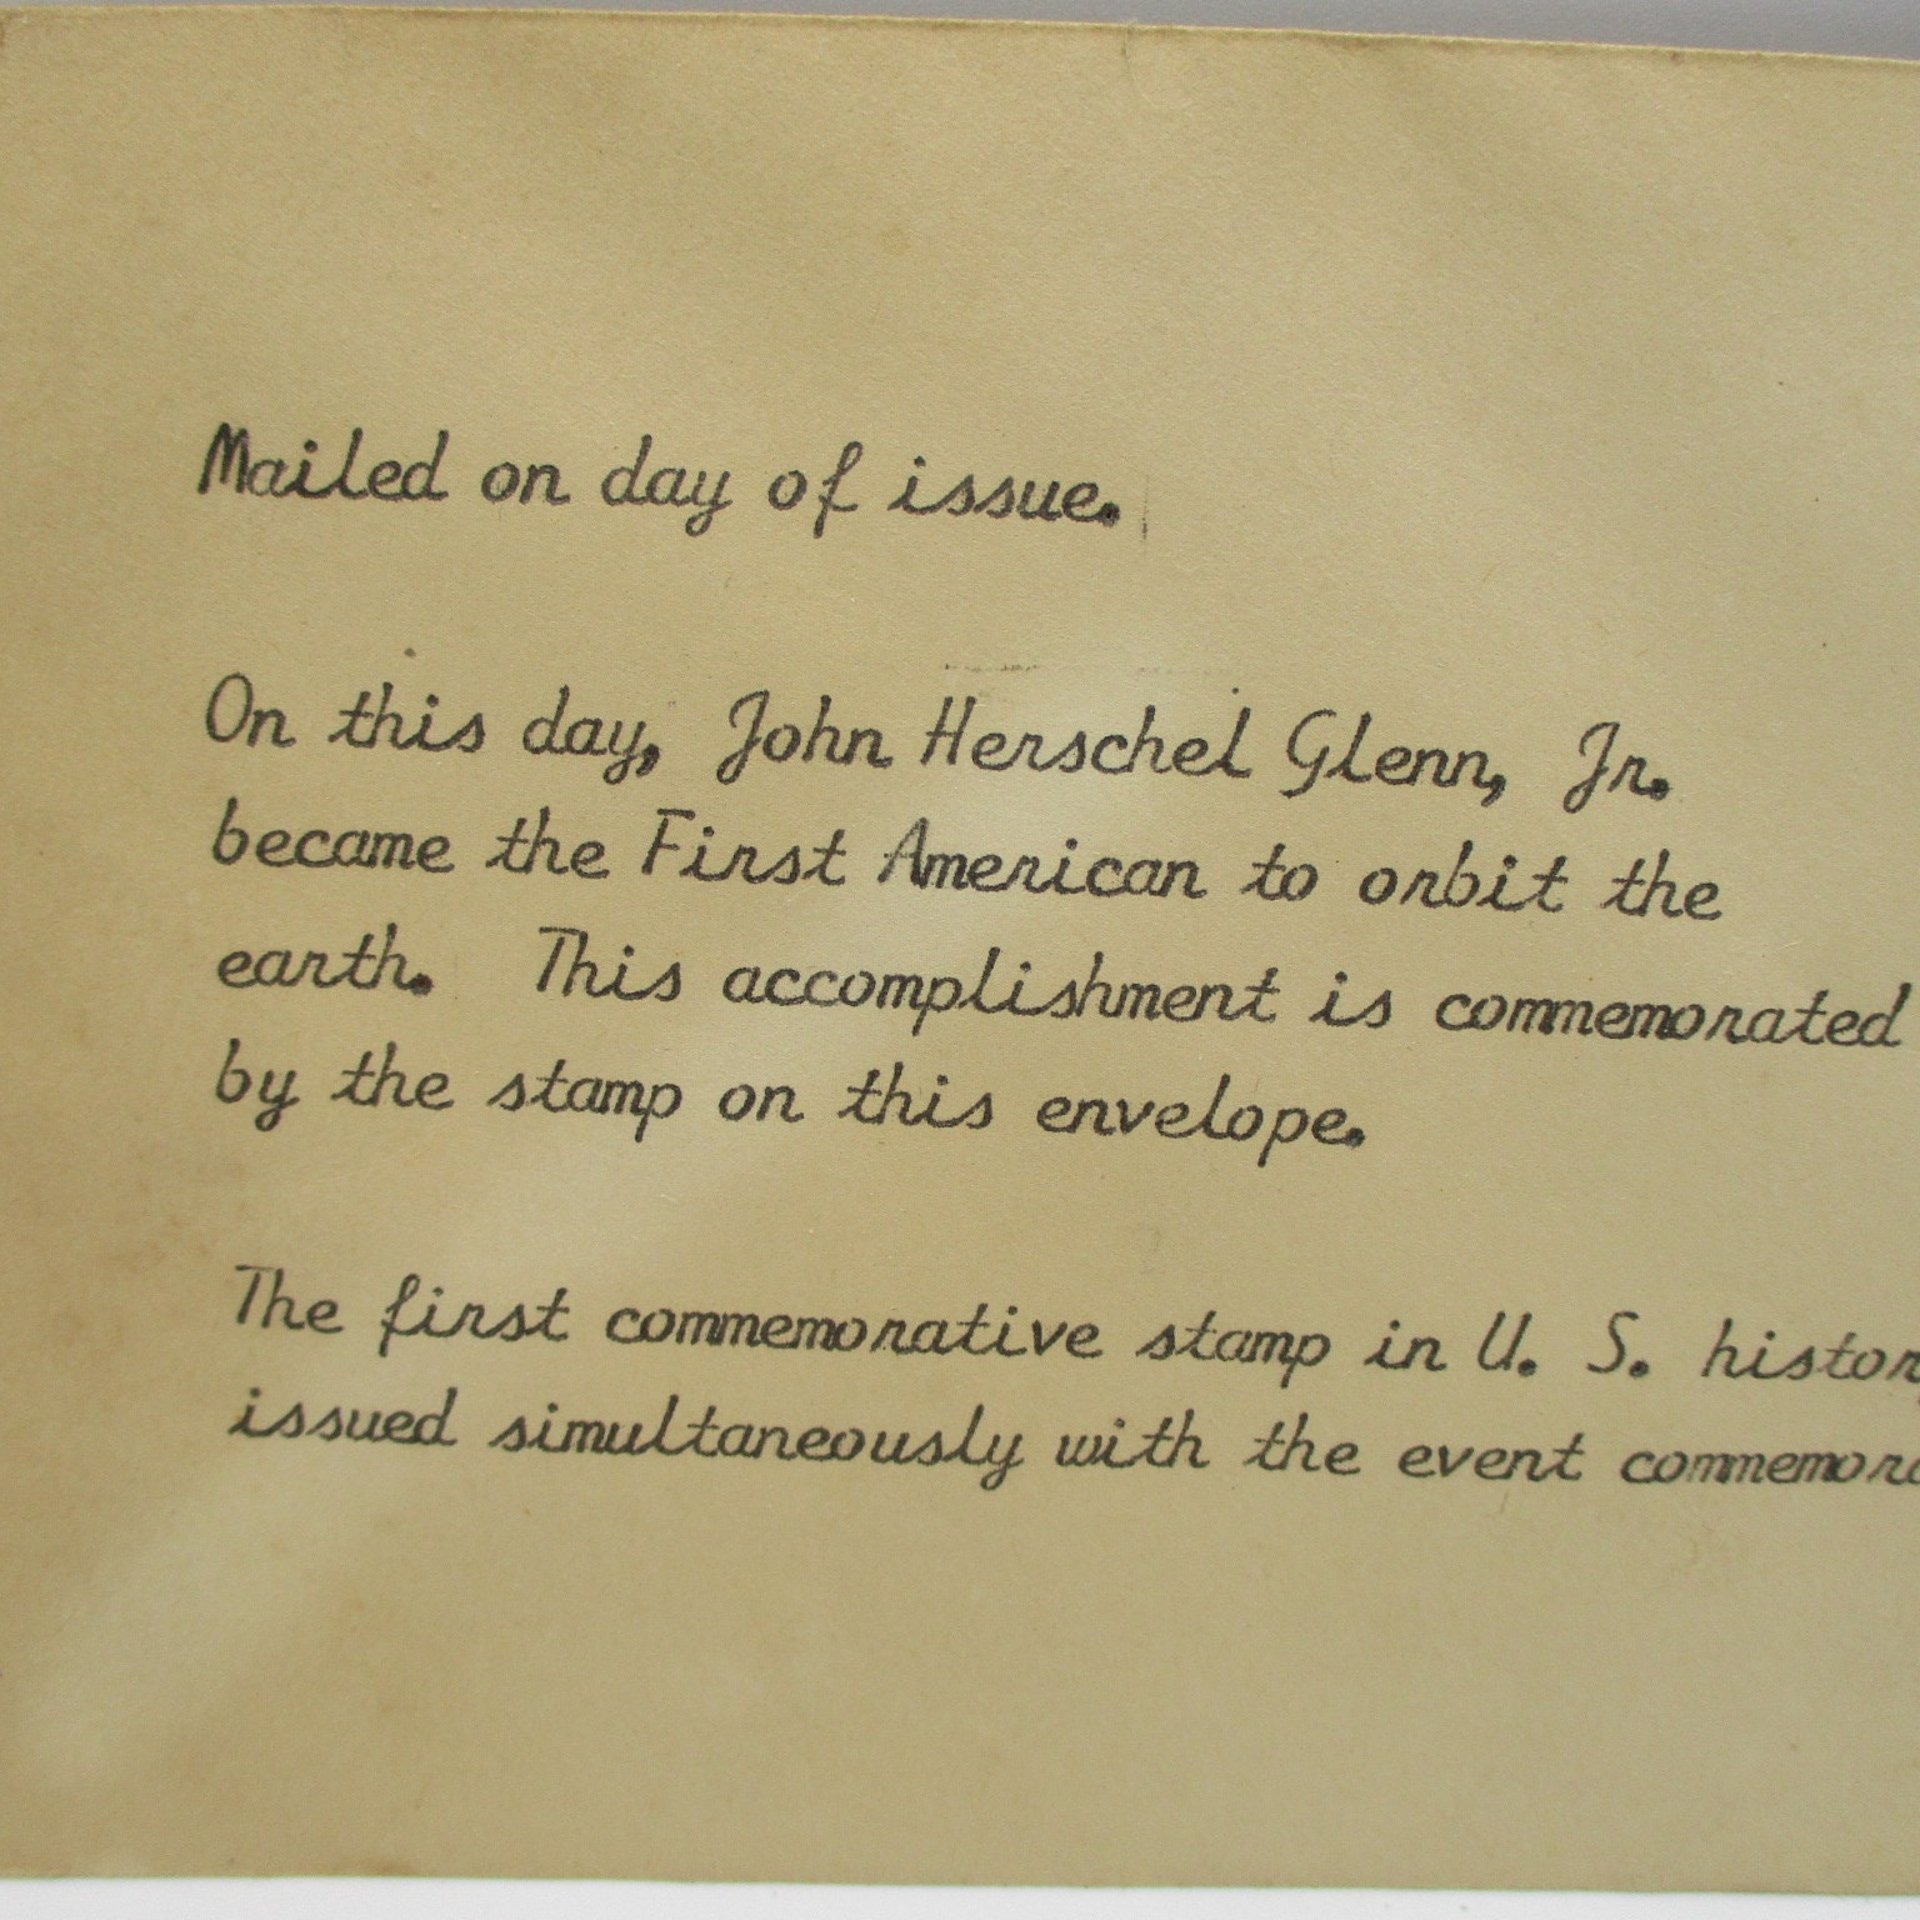 Mailed on day of issue.
On this day, John Herschel Glenn, Jr.
became the First American to orbit the
earth. This accomplishment is commemorated
by the stamp on this envelope.
The first commemorative stamp in U. S.
issued simultaneously with the event